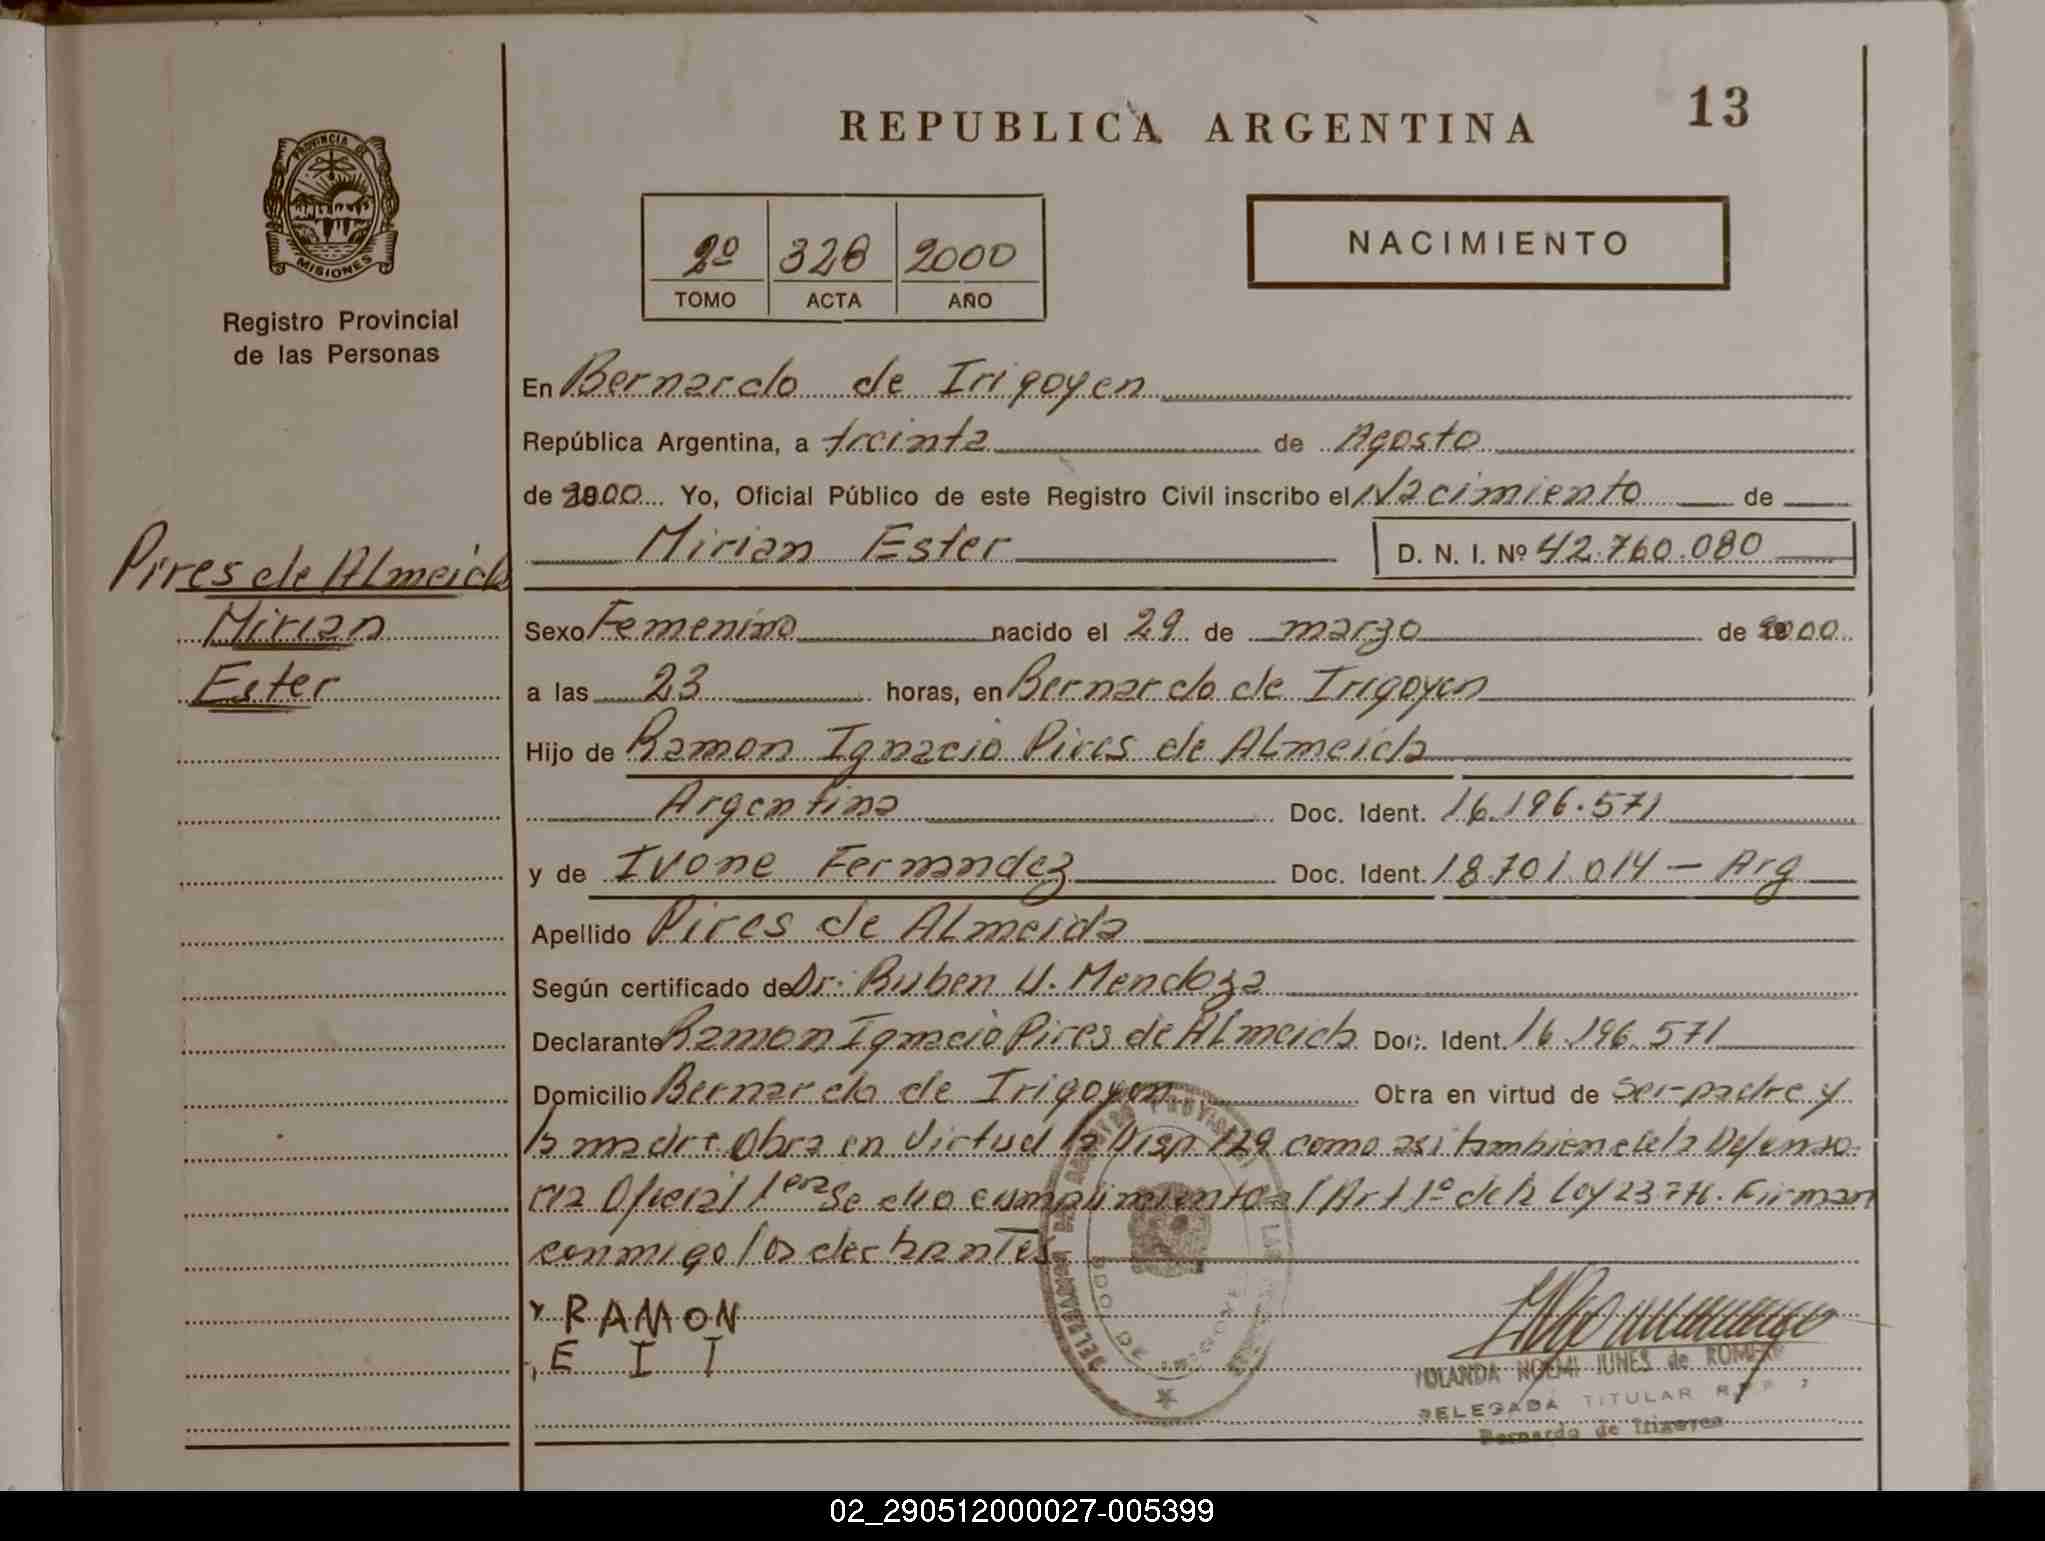 REPUBLICA ARGENTINA
13
PROVINCIA DE
MISIONES
Registro Provincial
de las Personas
2º 328 2000
TOMO ACTA AÑO
NACIMIENTO
En Bernardo de Irigoyen
República Argentina, a treinta de Agosto
de 2000 Yo, Oficial Público de este Registro Civil inscribo el Nacimiento de
Mirian Ester D. N. I. Nº 42.760.080
Pires de Almeida
Mirian
Ester
Sexo Femenino nacido el 29 de marzo de 2000
a las 23 horas, en Bernardo de Irigoyen
Hijo de Ramon Ignacio Pires de Almeida
Argentina Doc. Ident. 16.196.571
y de Ivone Fernandez Doc. Ident. 18.701.014 - Arg
Apellido Pires de Almeida
Según certificado de Dr. Ruben U. Mendoza
Declarante Ramon Ignacio Pires de Almeida Doc. Ident. 16.196.571
Domicilio Bernardo de Irigoyen Obra en virtud de ser padre y
la madre. Obra en virtud la Disp 129 como asi tambien de la Defenso-
ria Oficial 1era Se dio cumplimiento al Art 1º de la Ley 23776. Firman
conmigo los declarantes
RAMON
E I I
YOLANDA NOEMI JUNES de ROMERO
DELEGADA TITULAR
Bernardo de Irigoyen
02_290512000027-005399